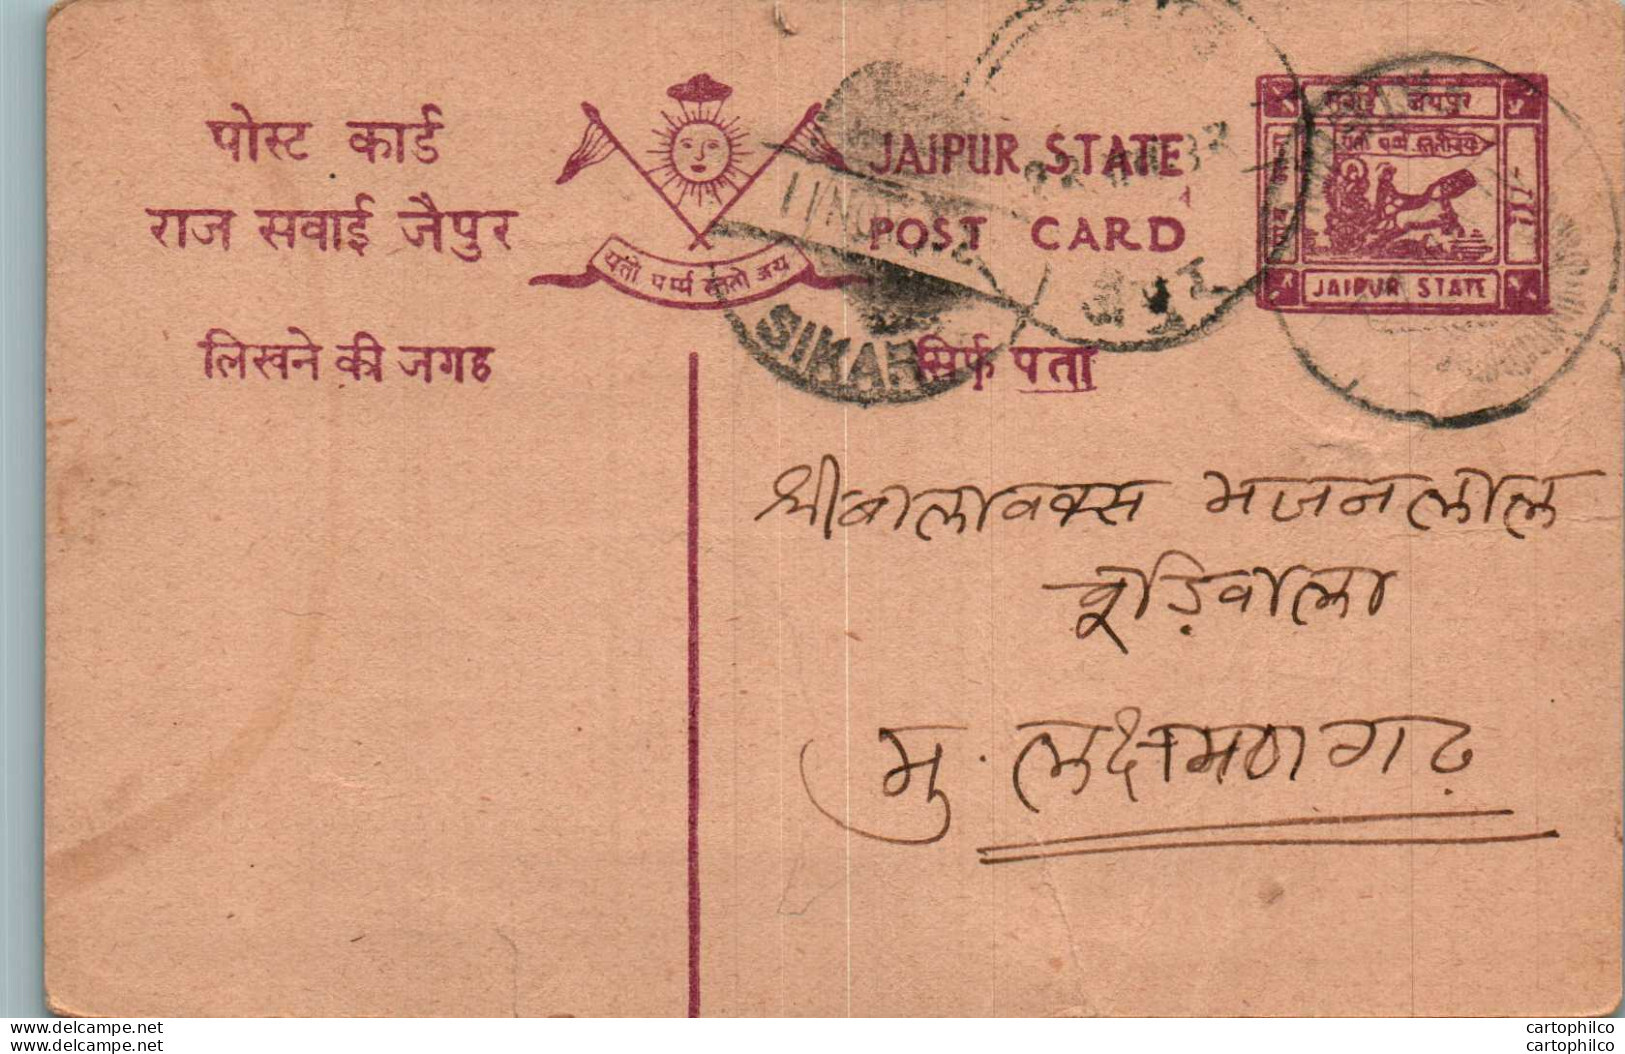 पोस्ट कार्ड
राज सवाई जैपुर
JAIPUR STATE
POST CARD
यतो धर्म्म स्ततो जय
सवाई जयपुर
JAIPUR STATE
SIKAR
लिखने की जगह
सिर्फ पता
श्रीबालावक्स भजनलाल
चूड़िवाला
मु. लक्षमणगढ़
www.delcampe.net
www.delcampe.net
cartophilco
cartophilco